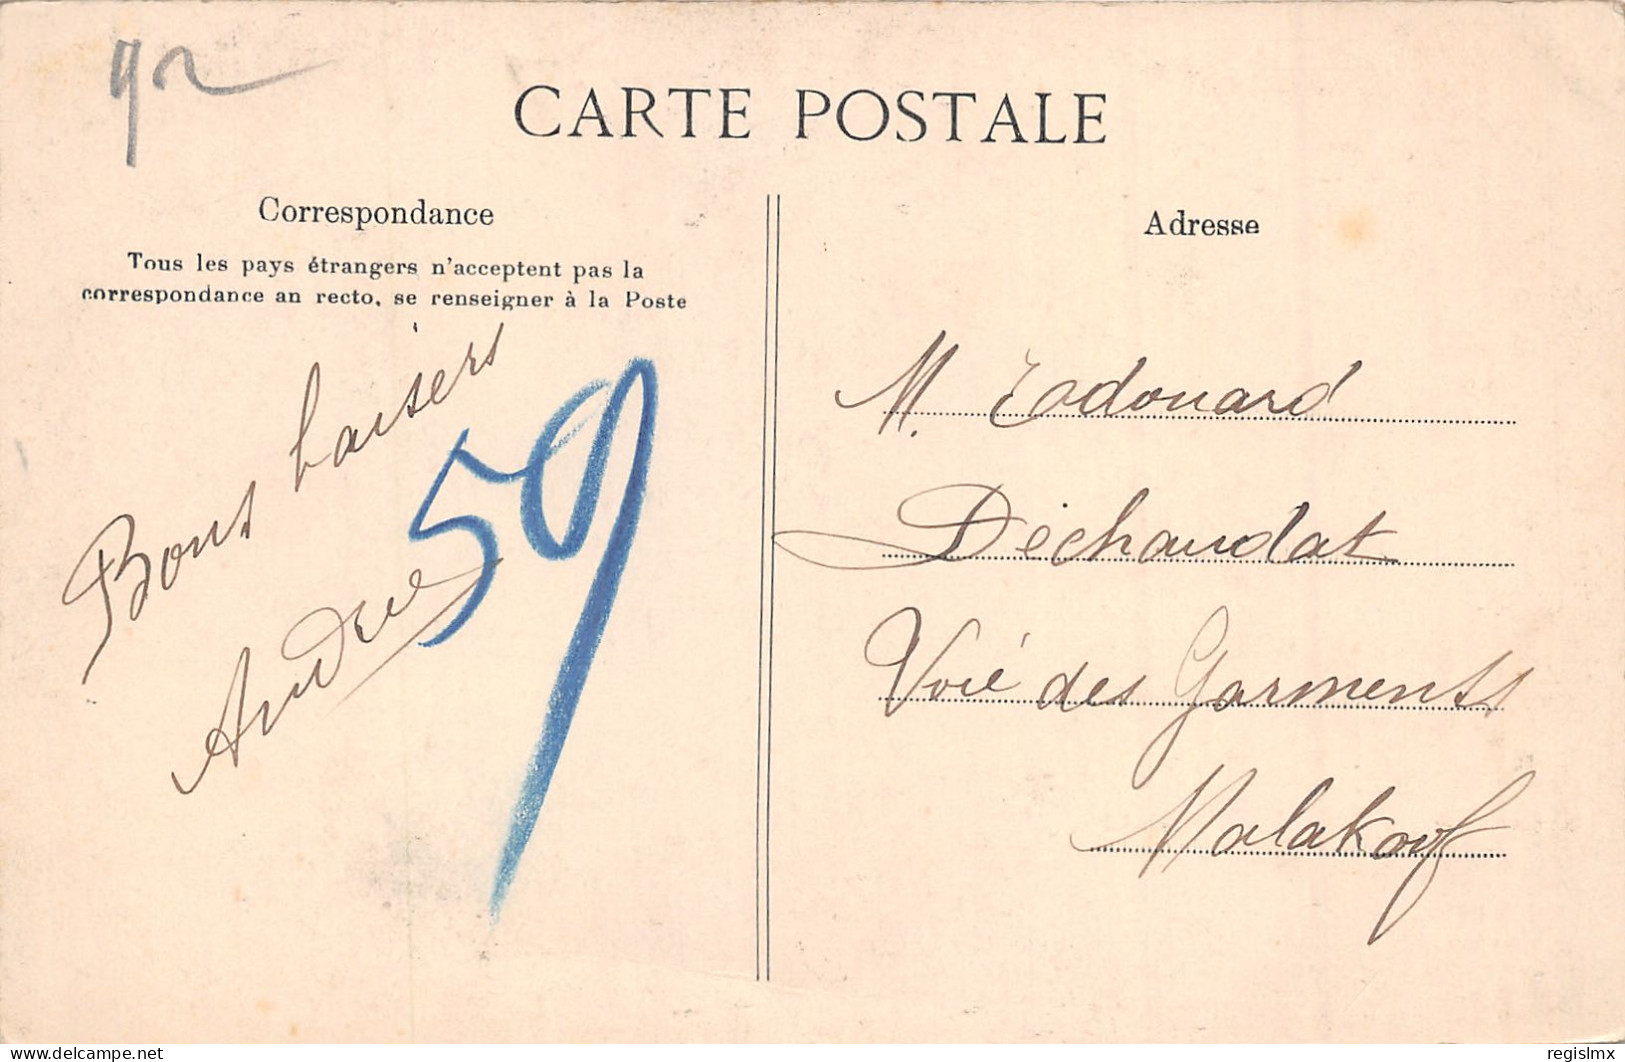 92
CARTE POSTALE
Correspondance
Tous les pays étrangers n'acceptent pas la
correspondance an recto, se renseigner à la Poste
Bons baisers
André
59
Adresse
M. Edouard
Déchaudat
Voie des Garments
Malakoff
delcampe.net
regislmx